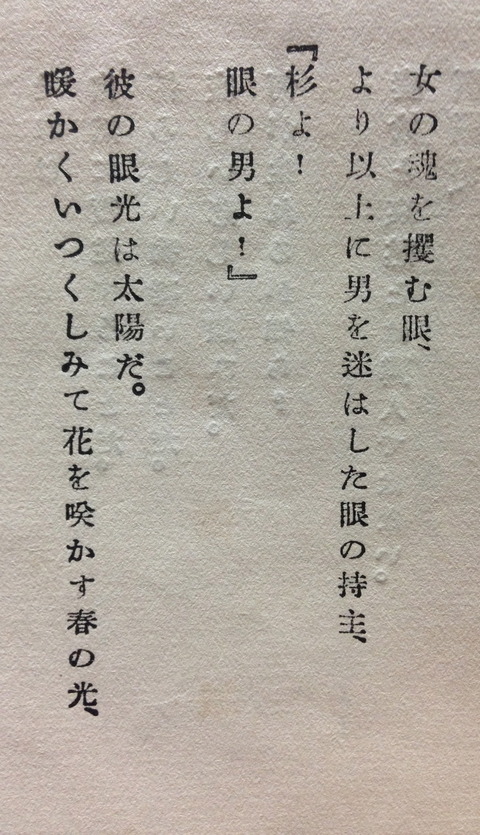 女の魂を攫む眼、
より以上に男を迷はした眼の持主、
『杉よ！
眼の男よ！』
彼の眼光は太陽だ。
暖かくいつくしみて花を咲かす春の光、